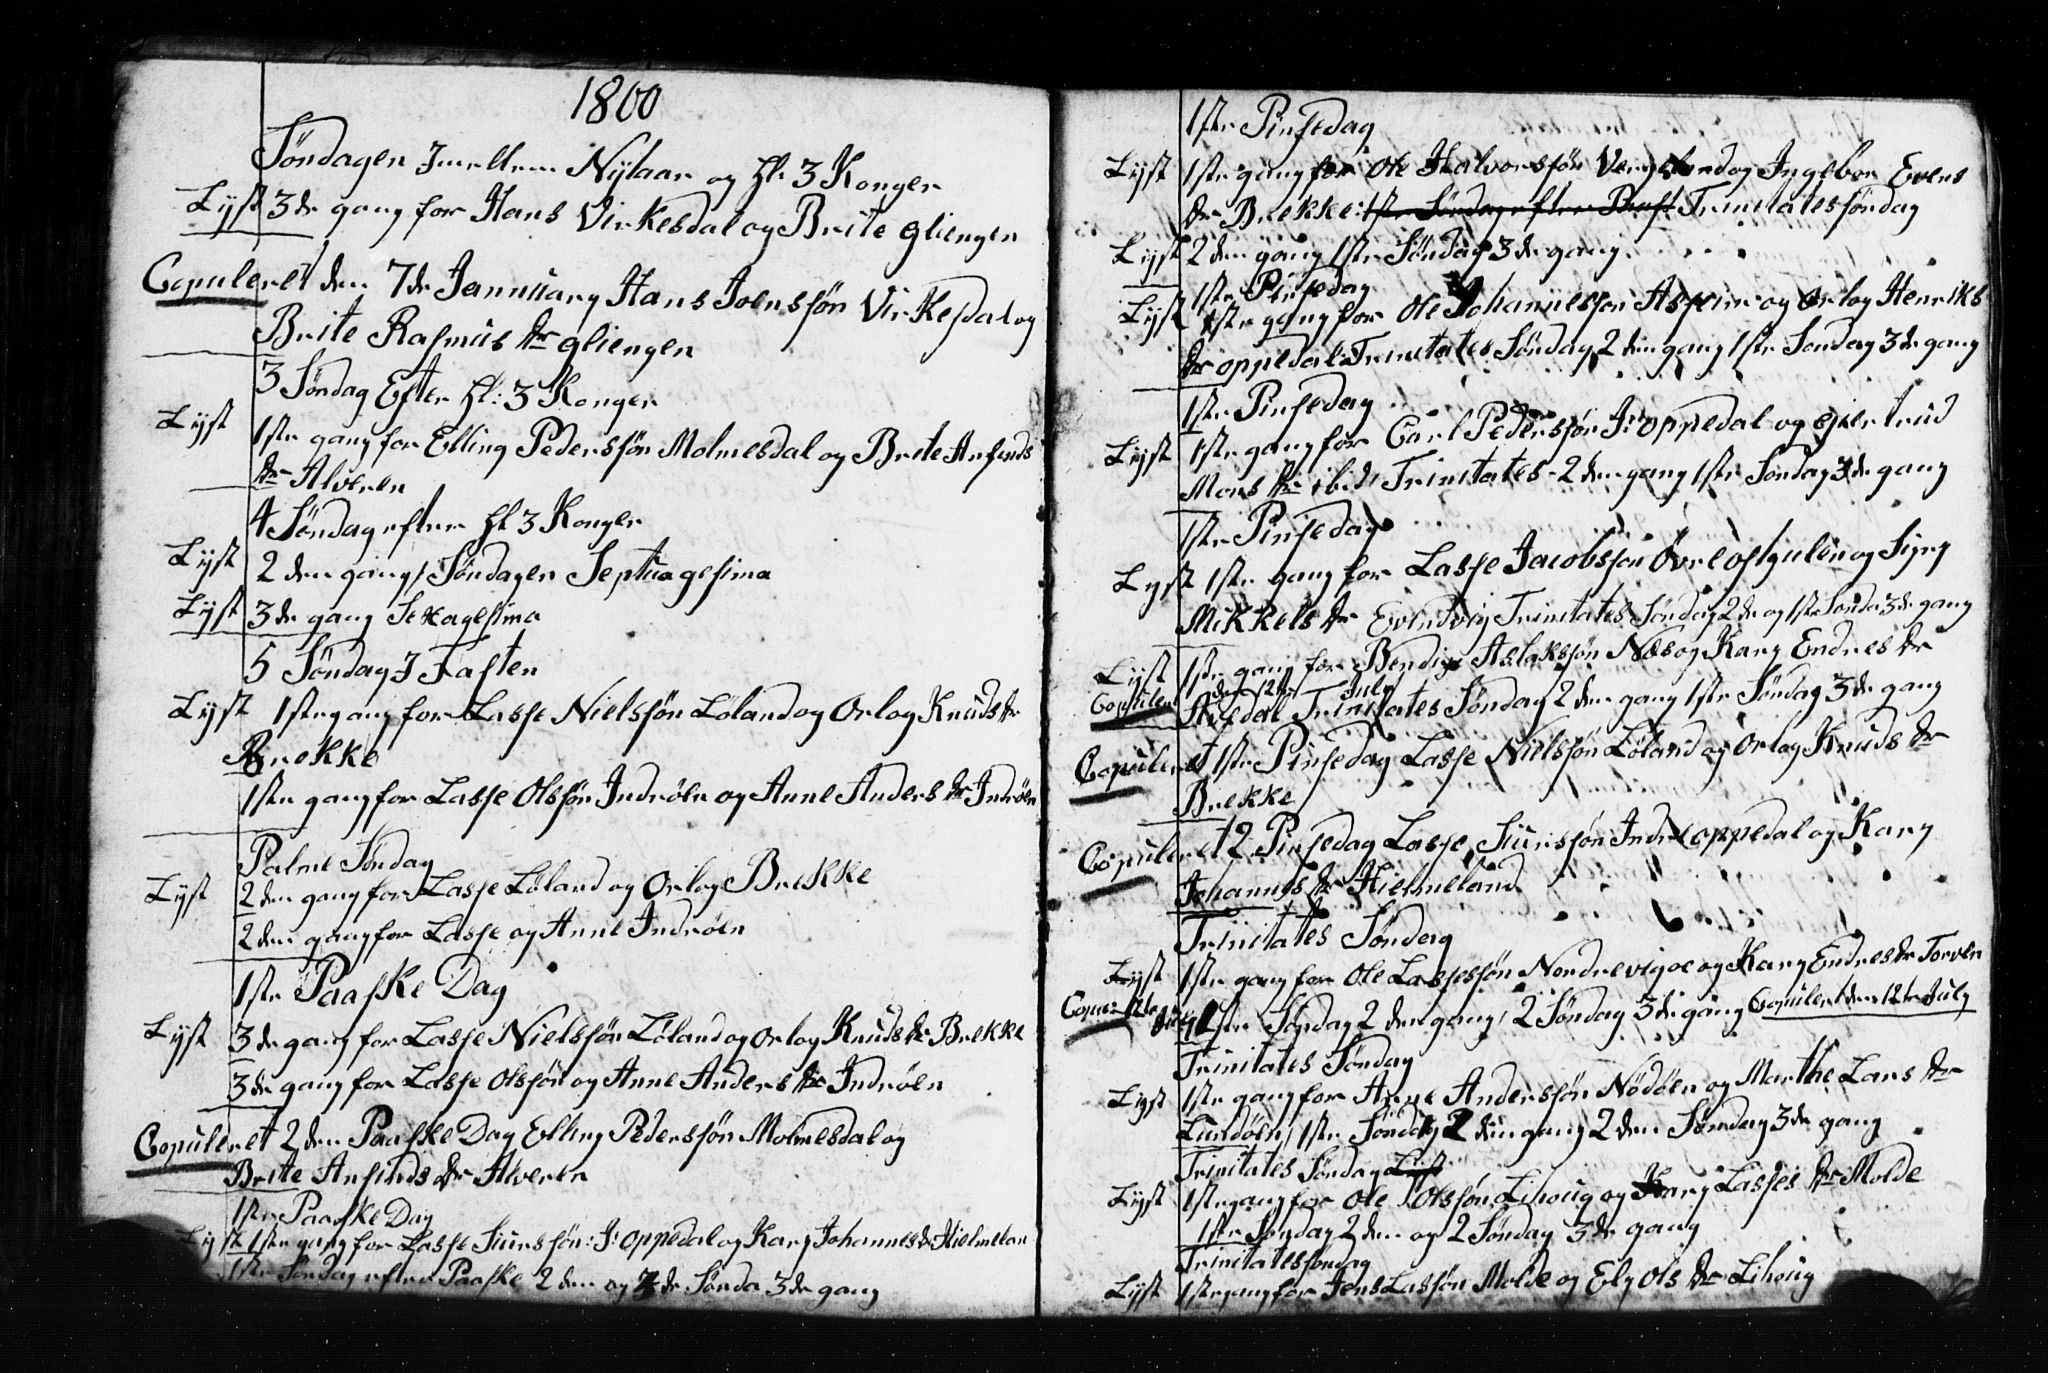 1800
Søndagen Imellem Nylaar og Hl: 3 Konger
Lyst 3de gang for Hans Virkesdal og Brite Gliengen
Copuleret den 7de Jannuary Hans Joensøn Virkesdal og
Brite Rasmus dr Gliengen
3 Søndag Efter Hl: 3 Konger
Lyst 1ste gang for Elling Pederssøn Molmesdal og Brite Anfinds
dr Alveren
4 Søndag efter Hl 3 Konger
Lyst 2 den gang, Søndagen Septuagesima
Lyst 3de gang Sexagesima
5 Søndag I Fasten
Lyst 1ste gang for Lasse Nielssøn Løland og Orlog Knuds dr
Brekke
1ste gang for Lasse Olssøn Indrøen og Anne Anders dr Indrøen
Palme Søndag
Lyst 2 den gang for Lasse Løland og Orlog Brekke
2 den gang for Lasse og Anne Indrøen
1ste Paaske Dag
Lyst 3de gang for Lasse Nielssøn Løland og Orlog Knuds dr Brekke
3de gang for Lasse Olssøn og Anne Anders dr Indrøen
Copuleret 2 den Paaske Dag Elling Pederssøn Molmesdal og
Brite Anfinds dr Alveren
1ste Paaske Dag
Lyst 1ste gang for Lasse Siurssøn: I: Oppedal og Kary Johannes dr Hielmelan
1ste Søndag efter Paaske 2 den og 2 de Sønda 3de gang
1ste Pinsedag
Lyst 1ste gang for Ole Halvorssøn Vergeland og Ingebor Evens
dr Brekke: 1ste Søndag efter Trinitatessøndag
Lyst 2 den gang 1ste Søndag 3de gang.
1ste Pinsedag
Lyst 1ste gang for Ole Johannessøn Asseim og Orlog Henriks
dr Oppedal: Trinitates Søndag 2 den gang 1ste Søndag 3de gang
1ste Pinsedag
Lyst 1ste gang for Carl Pederssøn I: Oppedal og Giertrud
Mons dr ibid: Trinitates 2 den gang 1ste Søndag 3de gang
1ste Pinsedag
Lyst 1ste gang for Lasse Jacobssøn Øvre og Signy
Mikkels dr Evindvig Trinitates Søndag 2 de og 1ste Sønda 3de gang
Lyst 1ste gang for Bendix Aslakssøn Næs og Kary Endres dr
Copuleret den 12te July
Trinitates Søndag 2 den gang 1ste Søndag 3de gang
Copuleret 1ste Pinsedag Lasse Nielssøn Løland og Orlog Knuds dr
Brekke
Copuleret 2 Pinsedag Lasse Siurssøn Indre Oppedal og Kary
Johannes dr Hielmeland
Trinitates Søndag
Lyst 1ste gang for Ole Lassessøn Nordrevigoe og Kary Endres dr Torven
1ste Søndag 2 den gang, 2 Søndag 3de gang Copuleret den 12te July
Trinitates Søndag
Lyst 1ste gang for Anne Anderssøn Nødøen og Marthe Lars dr
Lundøen, 1ste Søndag 2 den gang 2 den Søndag 3de gang
Trinitates Søndag Lyst
Lyst 1ste gang for Ole Olssøn Lihoug og Kary Lasses dr Molde
1ste Søndag 2 den og 2 Søndag 3de gang
Trinitatessøndag
Lyst 1ste gang for Jens Lassøn Molde og Ely Ols dr Lihoug